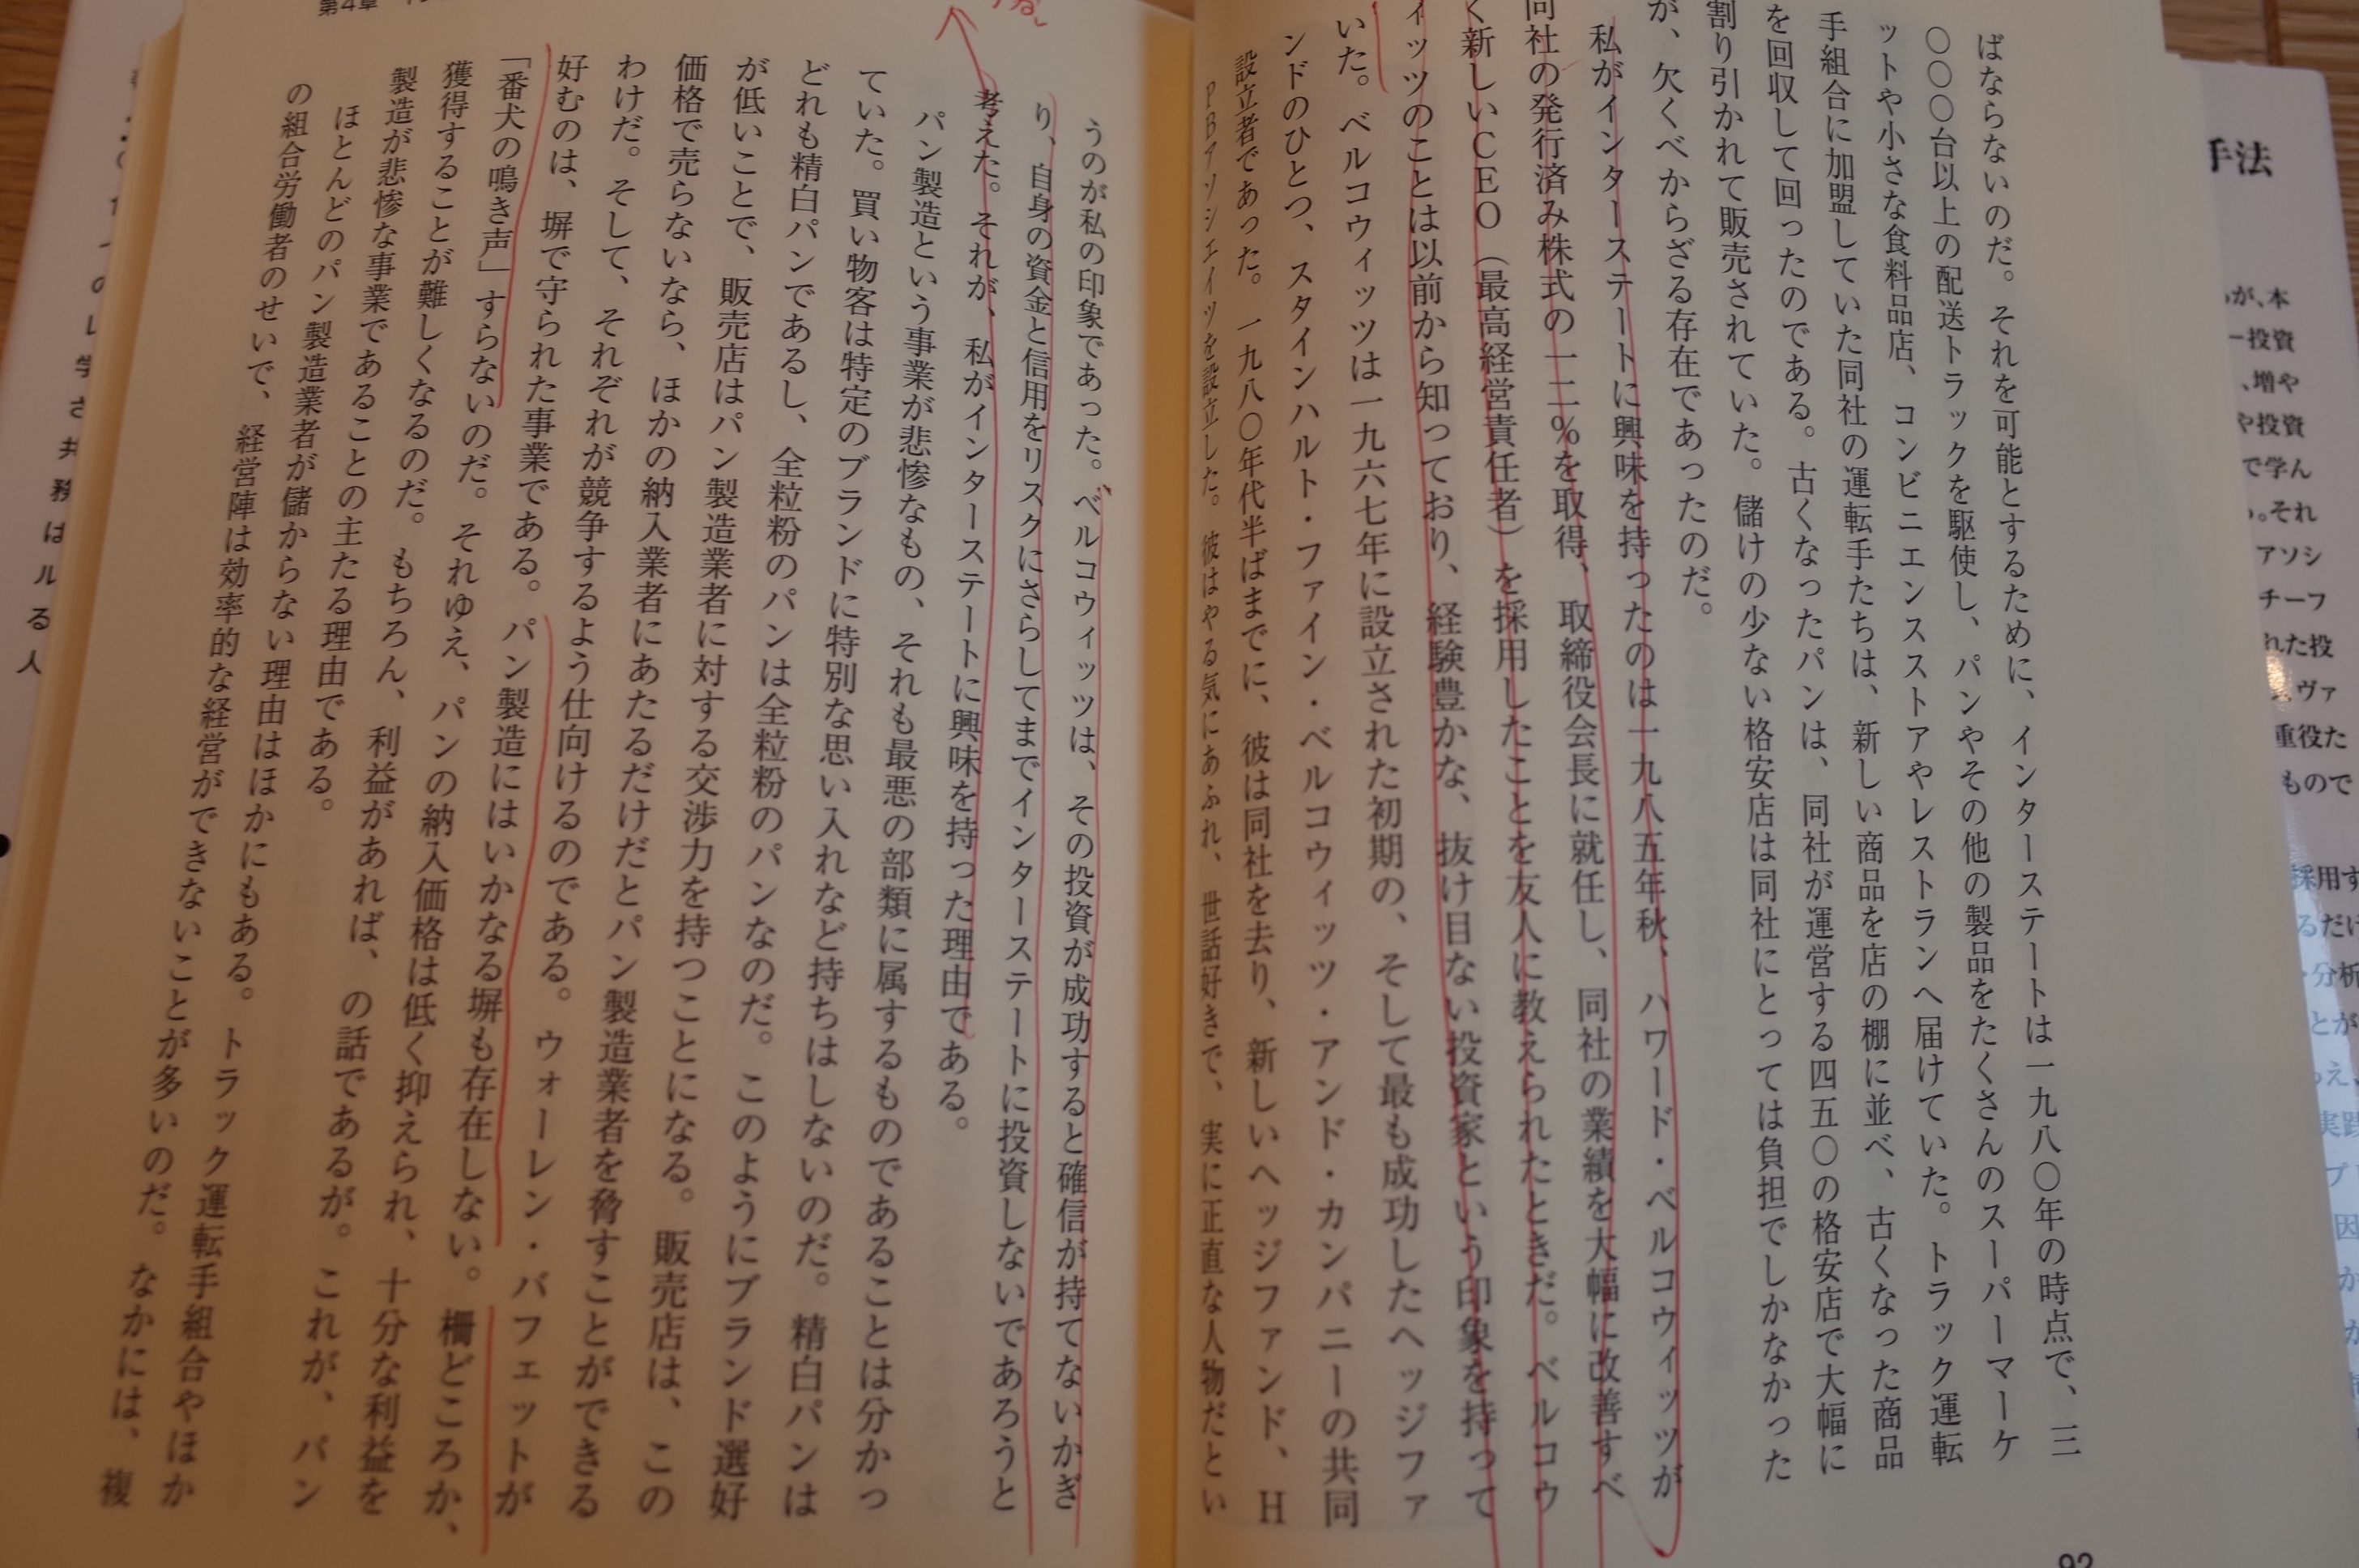 ばならないのだ。それを可能とするために、インターステートは一九八〇年の時点で、三
〇〇〇台以上の配送トラックを駆使し、パンやその他の製品をたくさんのスーパーマーケ
ットや小さな食料品店、コンビニエンスストアやレストランへ届けていた。トラック運転
手組合に加盟していた同社の運転手たちは、新しい商品を店の棚に並べ、古くなった商品
を回収して回ったのである。古くなったパンは、同社が運営する四五〇の格安店で大幅に
割り引かれて販売されていた。儲けの少ない格安店は同社にとっては負担でしかなかった
が、欠くべからざる存在であったのだ。
私がインターステートに興味を持ったのは一九八五年秋、ハワード・ベルコウィッツが
同社の発行済み株式の一二％を取得、取締役会長に就任し、同社の業績を大幅に改善すべ
く新しいCEO（最高経営責任者）を採用したことを友人に教えられたときだ。ベルコウ
ィッツのことは以前から知っており、経験豊かな、抜け目ない投資家という印象を持って
いた。ベルコウィッツは一九六七年に設立された初期の、そして最も成功したヘッジファ
ンドのひとつ、スタインハルト・ファイン・ベルコウィッツ・アンド・カンパニーの共同
設立者であった。一九八〇年代半ばまでに、彼は同社を去り、新しいヘッジファンド、H
PBアソシエイツを設立した。彼はやる気にあふれ、世話好きで、実に正直な人物だとい
92
第4章
うのが私の印象であった。ベルコウィッツは、その投資が成功すると確信が持てないかぎ
り、自身の資金と信用をリスクにさらしてまでインターステートに投資しないであろうと
考えた。それが、私がインターステートに興味を持った理由である。
パン製造という事業が悲惨なもの、それも最悪の部類に属するものであることは分かっ
ていた。買い物客は特定のブランドに特別な思い入れなど持ちはしないのだ。精白パンは
どれも精白パンであるし、全粒粉のパンは全粒粉のパンなのだ。このようにブランド選好
が低いことで、販売店はパン製造業者に対する交渉力を持つことになる。販売店は、この
価格で売らないなら、ほかの納入業者にあたるだけだとパン製造業者を脅すことができる
わけだ。そして、それぞれが競争するよう仕向けるのである。ウォーレン・バフェットが
好むのは、塀で守られた事業である。パン製造にはいかなる塀も存在しない。柵どころか、
「番犬の鳴き声」すらないのだ。それゆえ、パンの納入価格は低く抑えられ、十分な利益を
獲得することが難しくなるのだ。もちろん、利益があれば、の話であるが。これが、パン
製造が悲惨な事業であることの主たる理由である。
ほとんどのパン製造業者が儲からない理由はほかにもある。トラック運転手組合やほか
の組合労働者のせいで、経営陣は効率的な経営ができないことが多いのだ。なかには、複
手法